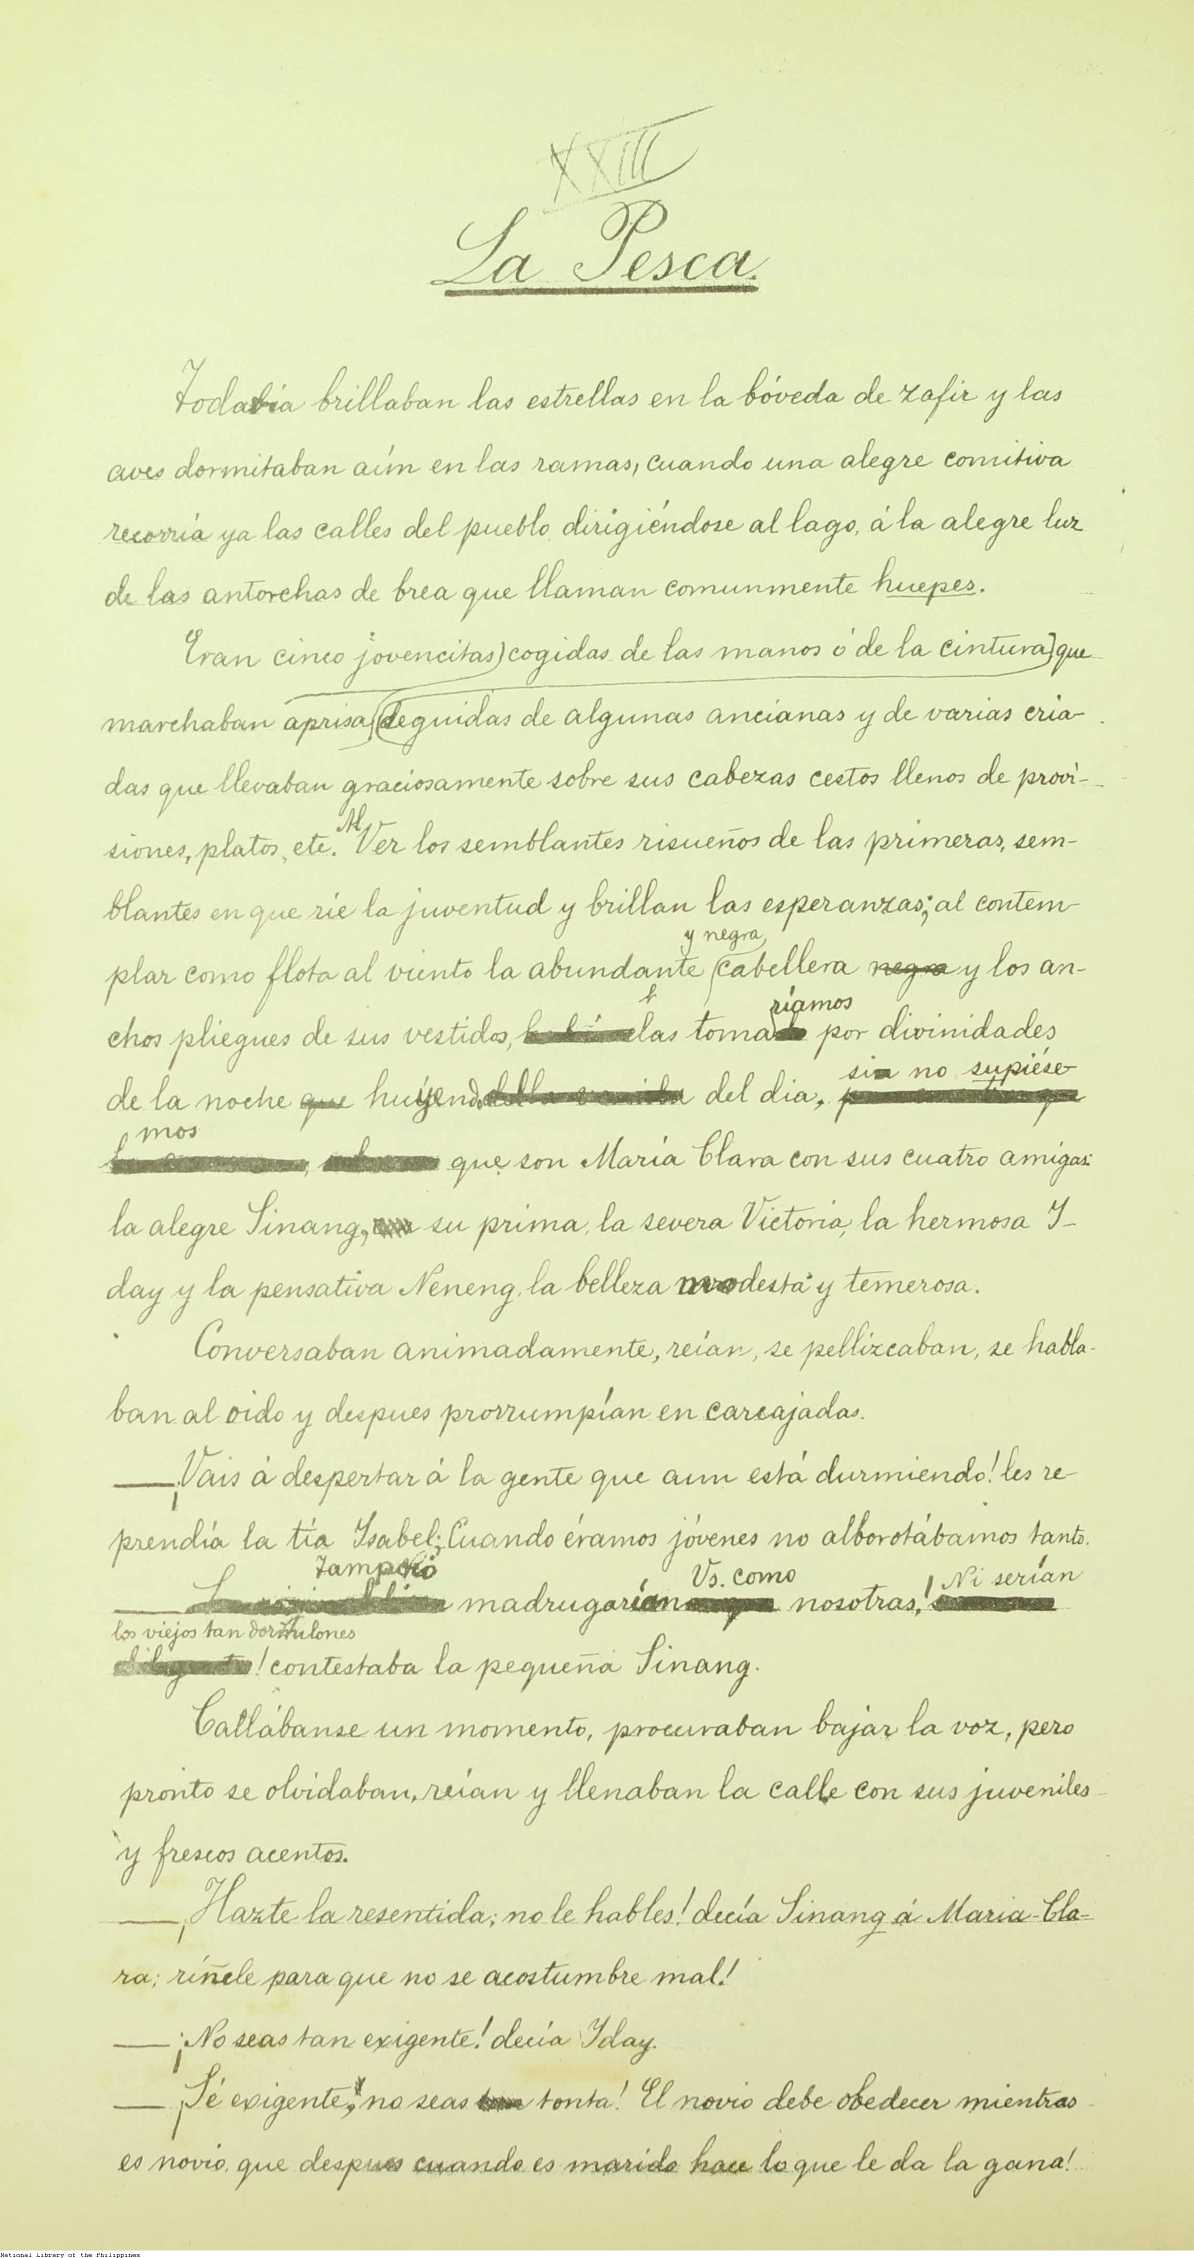 XXIII
La Pesca.
Todabía brillaban las estrellas en la bóveda de zafir y las
aves dormitaban aún en las ramas, cuando una alegre comitiva
recorría ya las calles del pueblo dirigiéndose al lago, á la alegre luz
de las antorchas de brea que llaman comunmente huepes.
Eran cinco jovencitas) cogidas de las manos ó de la cintura) que
marchaban aprisa, seguidas de algunas ancianas y de varias cria-
das que llevaban graciosamente sobre sus cabezas cestos llenos de provi-
Al
siones, platos, etc. Ver los semblantes risueños de las primeras, sem-
blantes en que ríe la juventud y brillan las esperanzas; al contem-
y negra
plar como flota al viento la abundante cabellera negra y los an-
ríamos
chos pliegues de sus vestidos, las toma por divinidades
si no supiése
de la noche que huyendo del dia,
mos
que son María Clara con sus cuatro amigas:
la alegre Sinang, su prima, la severa Victoria, la hermosa I-
day y la pensativa Neneng, la belleza modesta y temerosa.
Conversaban animadamente, reían, se pellizcaban, se habla-
ban al oido y despues prorrumpían en carcajadas.
—¡Vais á despertar á la gente que aun está durmiendo! les re-
prendía la tía Isabel; Cuando éramos jóvenes no alborotábamos tanto.
Tampoco Vs. como Ni serían
— madrugarían nosotras,!
los viejos tan dormilones
! contestaba la pequeña Sinang.
Callábanse un momento, procuraban bajar la voz, pero
pronto se olvidaban, reían y llenaban la calle con sus juveniles
y frescos acentos.
—¡Hazte la resentida; no le hables! decía Sinang á Maria-Cla-
ra; ríñele para que no se acostumbre mal!
—¡No seas tan exigente! decía Iday.
—¡Sé exigente, no seas tonta! El novio debe obedecer mientras
es novio, que despues cuando es marido hace lo que le da la gana!
National Library of the Philippines